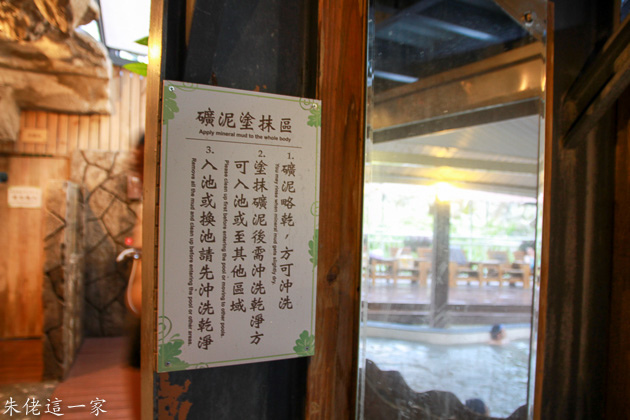 礦泥塗抹區
Apply mineral mud to the whole body
1. 礦泥略乾，方可沖洗
You may rinse when mineral mud gets slightly dry.
2. 塗抹礦泥後需沖洗乾淨方
可入池或至其他區域
Please clean up first before entering the pool or moving to other pools.
3. 入池或換池請先沖洗乾淨
Remove all the mud and clean up before entering the pool or other areas.
朱佬這一家